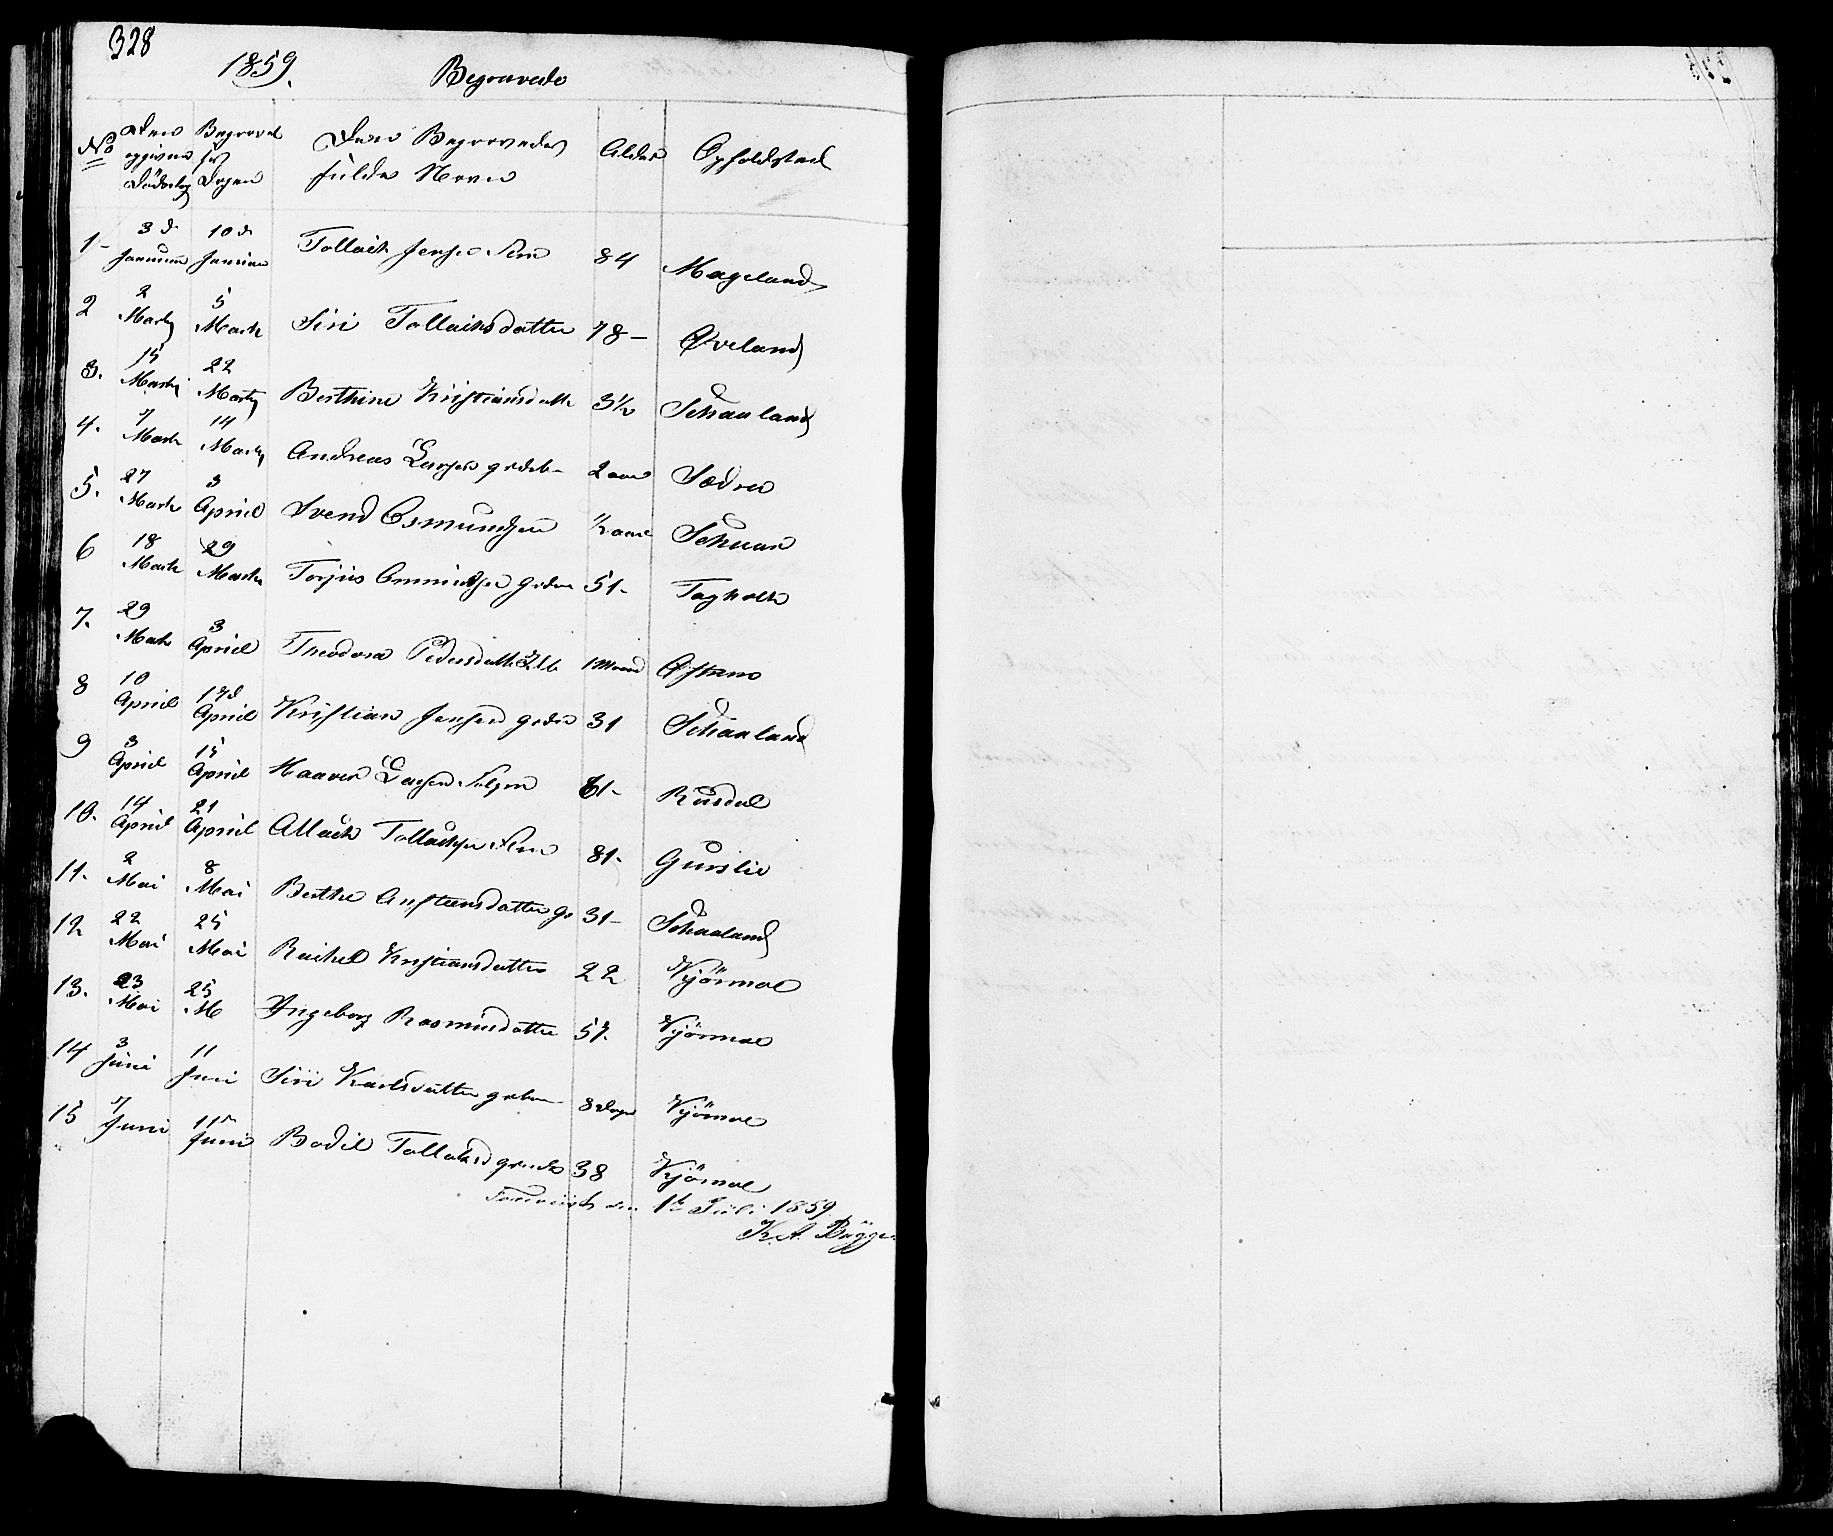 328
1859. Begravede
No Den opgivne Dødsdag Begravelses Dagen Den Begravedes fulde Navn Alder Opholdsted
1- 3d Januar 10d Januar Tollack Jensen 84 Mageland
2 2 Marts 5 Marts Siri Tollacksdatter 78- Øveland
3. 15 Marts 22 Marts Berthine Kristiansdatte 3½ Schaaland
4. 7 Marts 14 Marts Andreas Larsen 2 aar Sædra
5. 27 Marts 3 Apriel Svend Osmundsen ½ aar
6 18 Marts 29 Marts Torjus 51- Tagholt
7. 29 Marts 3 Apriel Theodora Pedersdatte 1 Maaned
8 10 Apriel 17d Apriel Kristian Jensen 31 Schaaland
9 3 Apriel 15 Apriel Haaver Larsen 61- Rusdal
10. 14 Apriel 21 Apriel Allack Tollacksen 81- Gurslie
11. 2 Mai 8 Mai Berthe Ansteensdatter 31- Schaaland
12 22 Mai 25 Mai Rachel Kristiansdatter 22 Kjørmoe
13. 23 Mai 25 M Ingeborg Rasmusdatter 57. Kjørmoe
14 3 Juni 11 Juni Siri Karlsdatter 8 Dage Kjørmoe
15 7 Juni 11 Juni Bodil 38 Kjørmoe
1st Juli 1859
K.A. Bügge